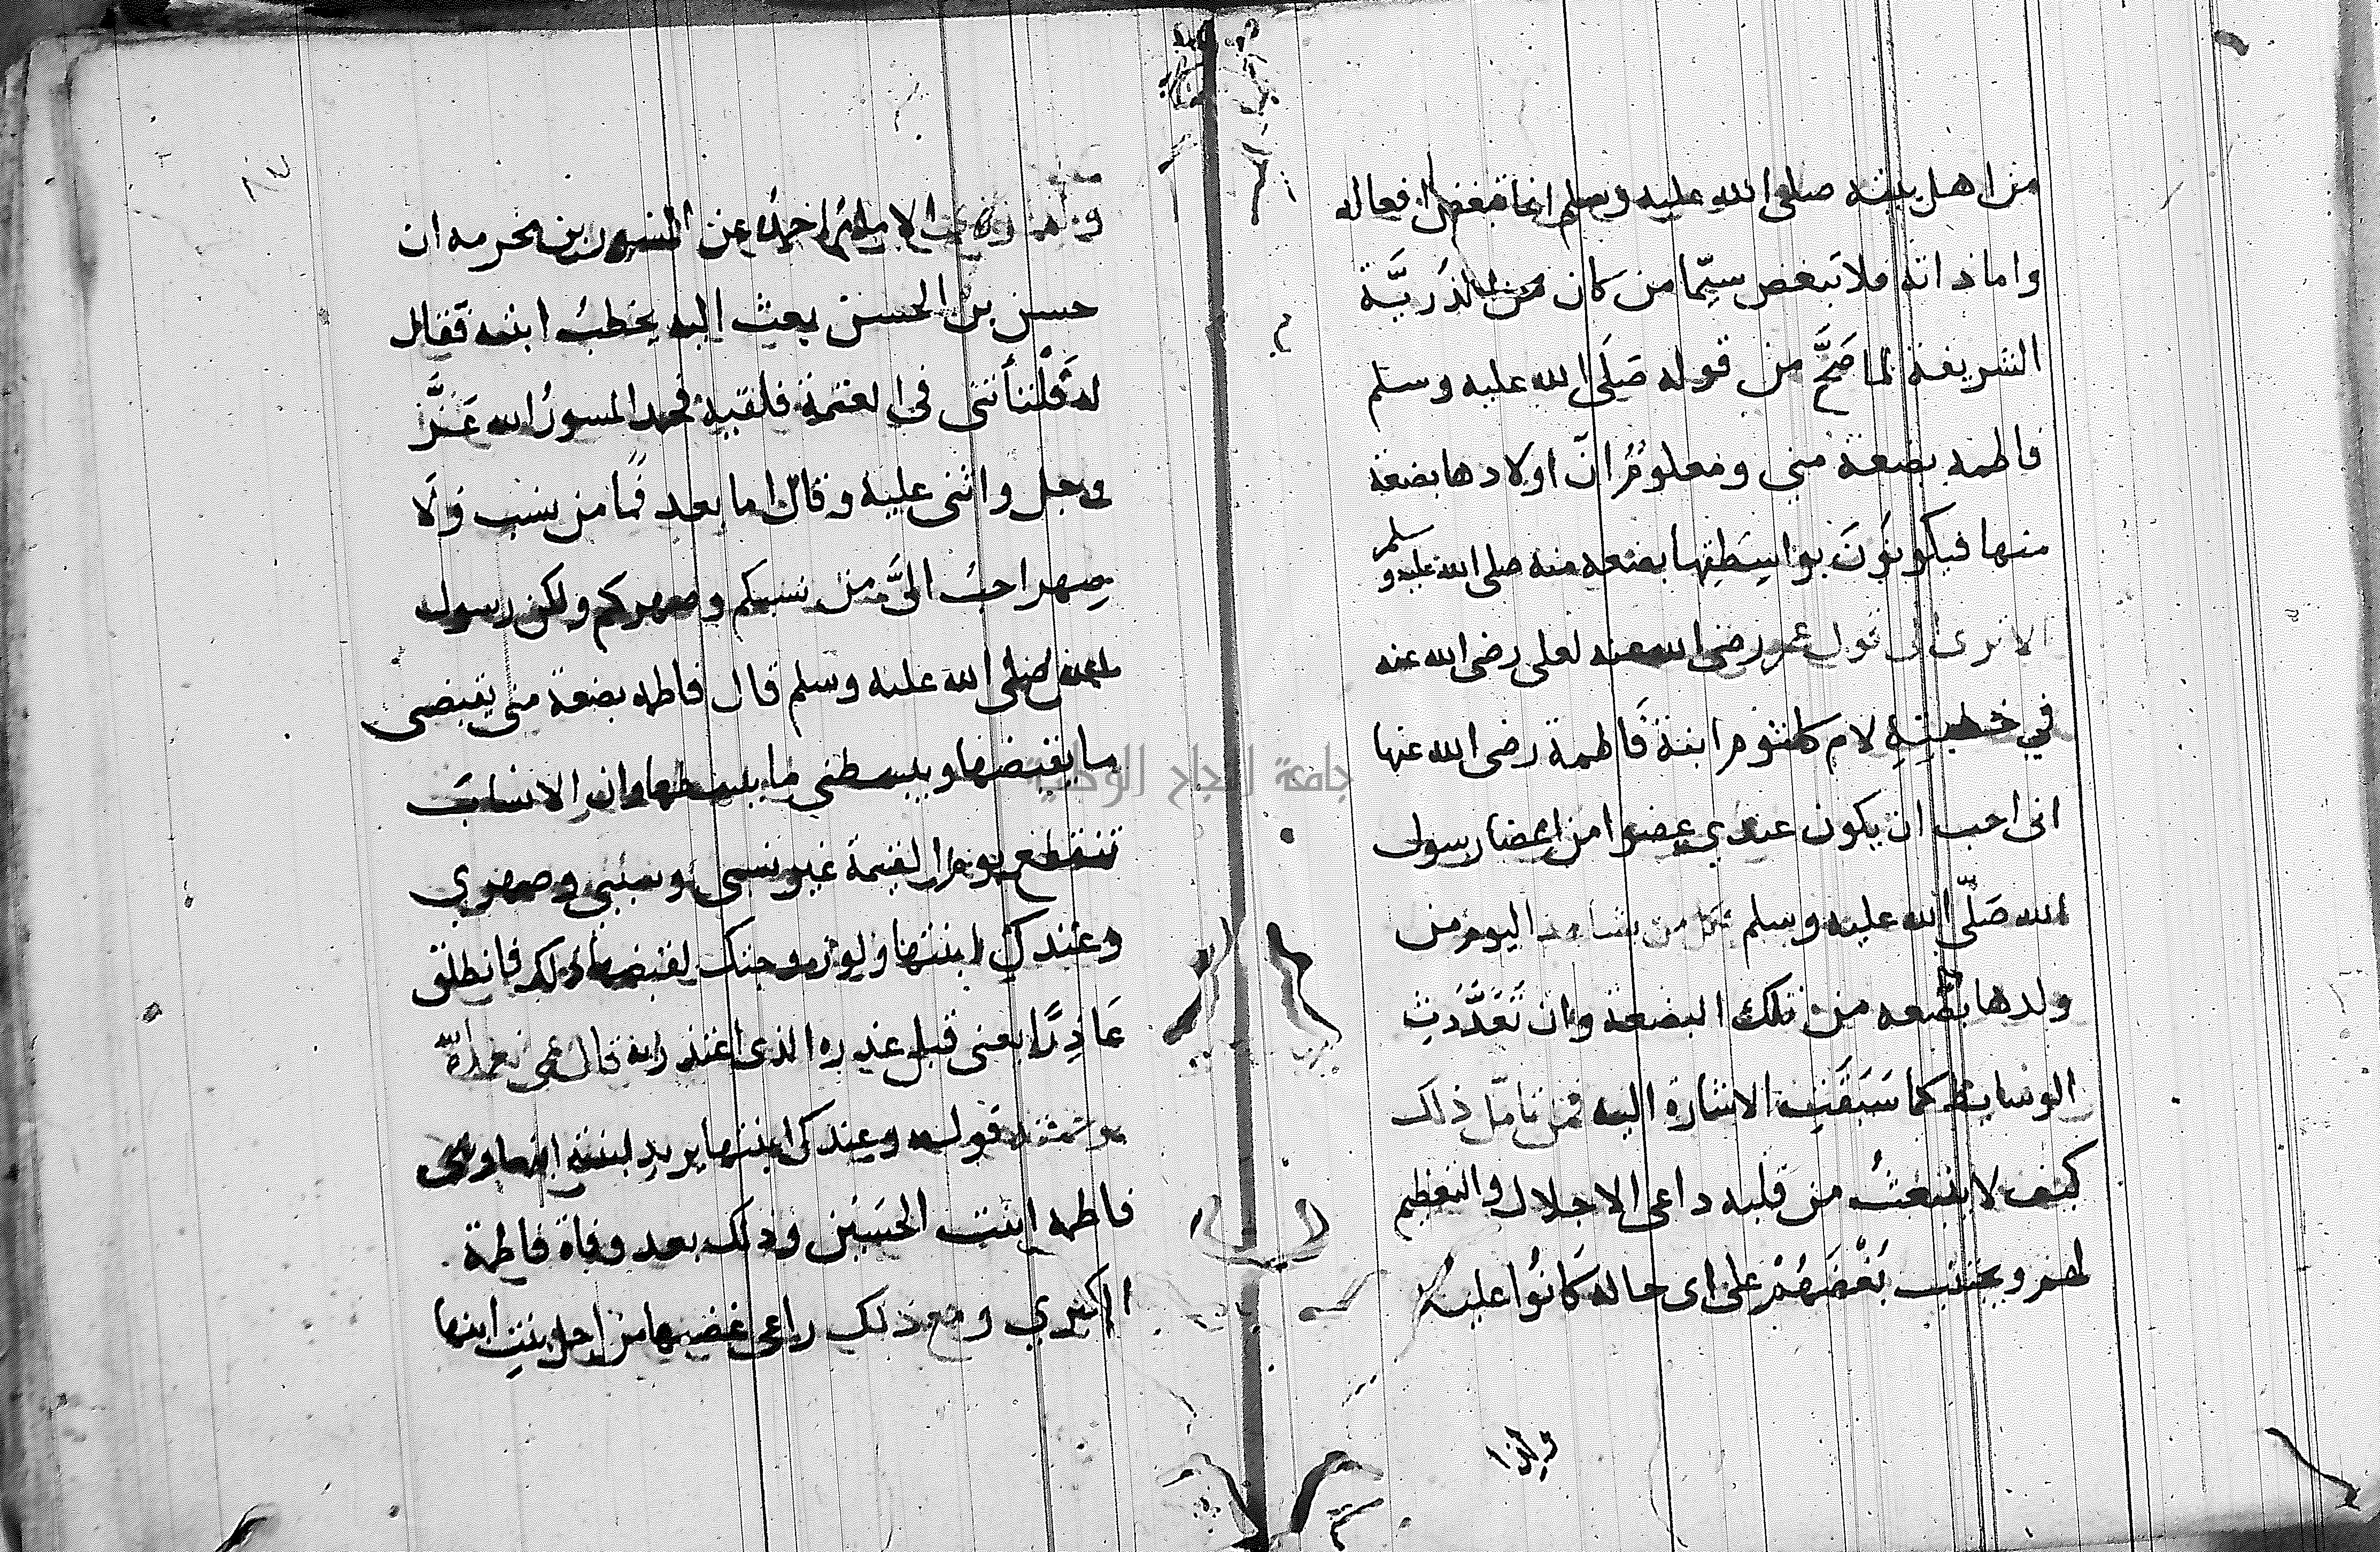 من اهل بيته صلى الله عليه وسلم انما تبغض افعاله
واما ذاته فلا تبغض سيّما من كان من الذريَّة
الشريفة لما صَحَّ من قوله صَلَى الله عليه وسلم
فاطمه بضعة مني ومعلومٌ انّ اولادها بضعة
منها فيكونونَ بواسِطتِها بضعه منه صلى الله عليه وسلم
الا ترى الى قول عمر رضى الله عنه لعلى رضى الله عنه
في خطبتِهِ لام كلثوم ابنة فَاطمة رضى الله عنها
انى احب ان يكون عندي عضوا من اعضا رسول
الله صَلّى الله عليه وسلم فكل من يشاهد اليوم من
ولدها بضعه من تلك البضعة وان تَعَدَّدَتِ
الوسايط كما سَبَقَتِ الاشارة اليه فمن تامّل ذلك
كيف لا ينبعثُ من قلبه داعى الاجلال والتعظيم
لهم ويجتنب بَغْضَهُمْ على اى حاله كَانُوا عليه
ولهذا
جامعة النجاح الوطنية
الامامُ احمدُ عن المسور بن مخرمه ان
حسن بن الحسن بعث اليه يخطبُ ابنته فقال
له قُلْ فليأتنى فى العتمة فلقيه فحمد المسورُ الله عَزَّ
وجل واثنى عليه وقال اما بعد فما من نسب وَلَا
صِهر احبُ الىَّ من نسبكم وصهركم ولكن رسول
الله صلى الله عليه وسلم قال فاطمه بضعة منى يقبضنى
ما يقبضها ويبسطني ما يبسطها وان الانسابَ
تنقطع يوم القيمة غير نسبى وسببي وصهري
وعندك ابنتها ولو زوجتك لقبضها ذلك فانطلق
عَاذِرًا يعنى قبل عذره الذى اعتذر به قال
قوله وعندك ابنتها يريد ابنة ابنها وهى
فاطمه ابنت الحسَين وذلك بعد وفاة فاطمة
الكبري ومع ذلك راعى غضبها من اجل بنتِ ابنها